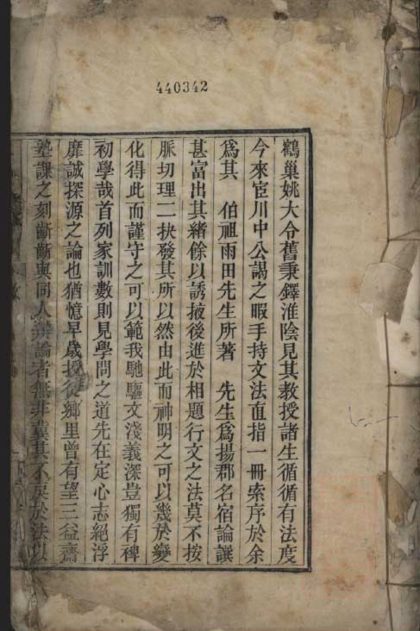 440342
鶴巢姚大令舊秉鐸淮陰見其教授諸生循循有法度
今來宦川中公謁之暇手持文法直指一冊索序於余
爲其 伯祖雨田先生所著 先生爲揚郡名宿論譔
甚富出其緒餘以誘掖後進於相題行文之法莫不按
脈切理一一抉發其所以然由此而神明之可以幾於變
化得此而謹守之可以範我馳驅文淺義深豈獨有裨
初學哉首列家訓數則見學問之道先在定心志絕浮
靡誠探源之論也猶憶早歲授徒鄉里曾有望三益齋
塾課之刻齗齗與同人辯論者無非冀其不戾於法以